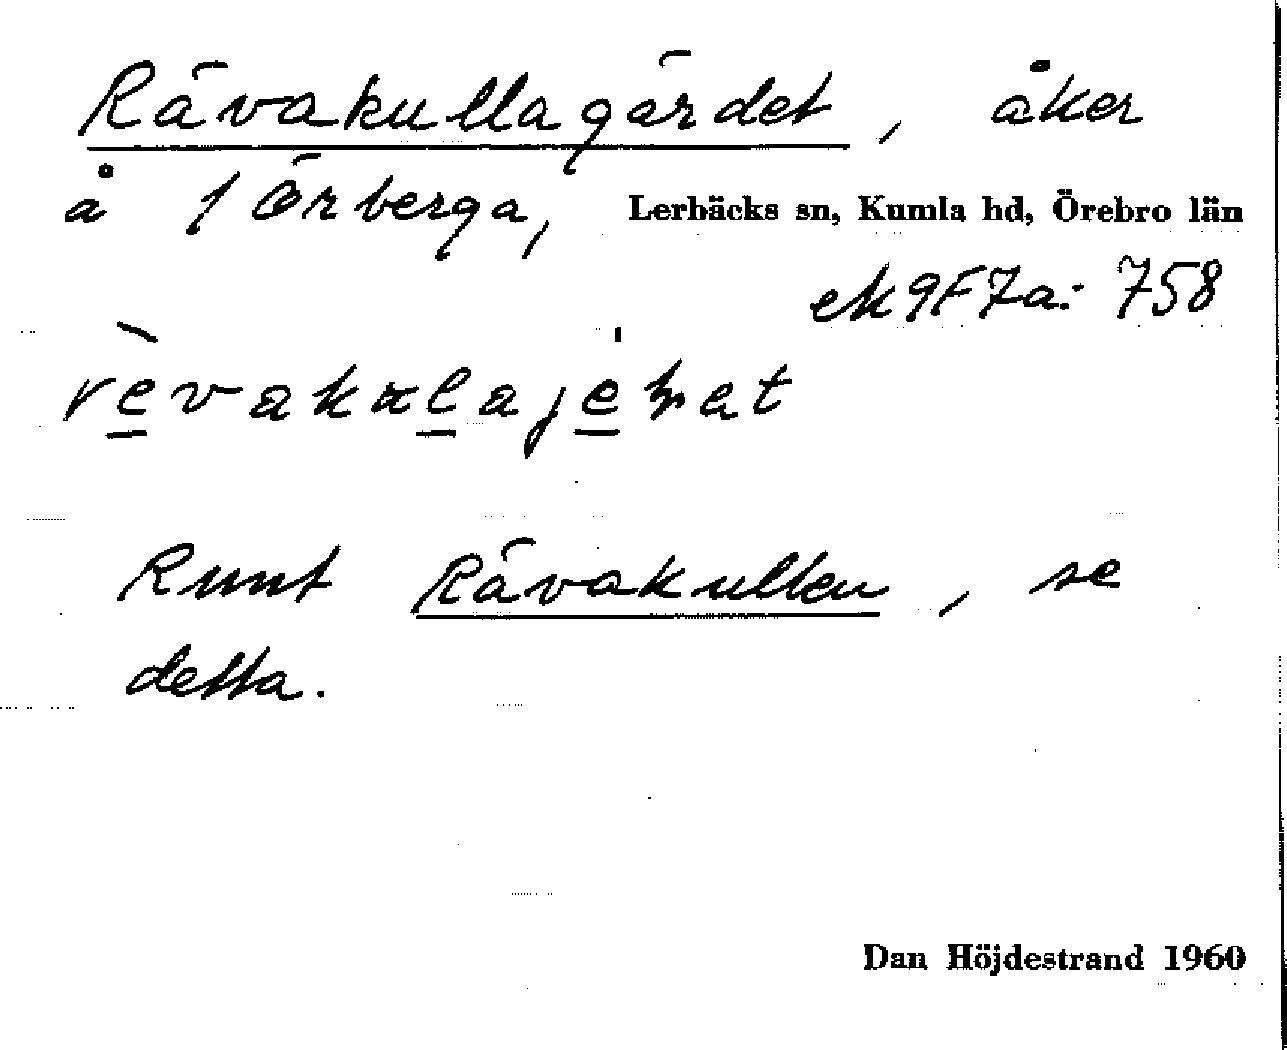 Rävakullagärdet, åker
å 1 Örberga, Lerbäcks sn, Kumla hd, Örebro län
ek 9F7a: 758
Runt Rävakullen, se
detta.
Dan Höjdestrand 1960